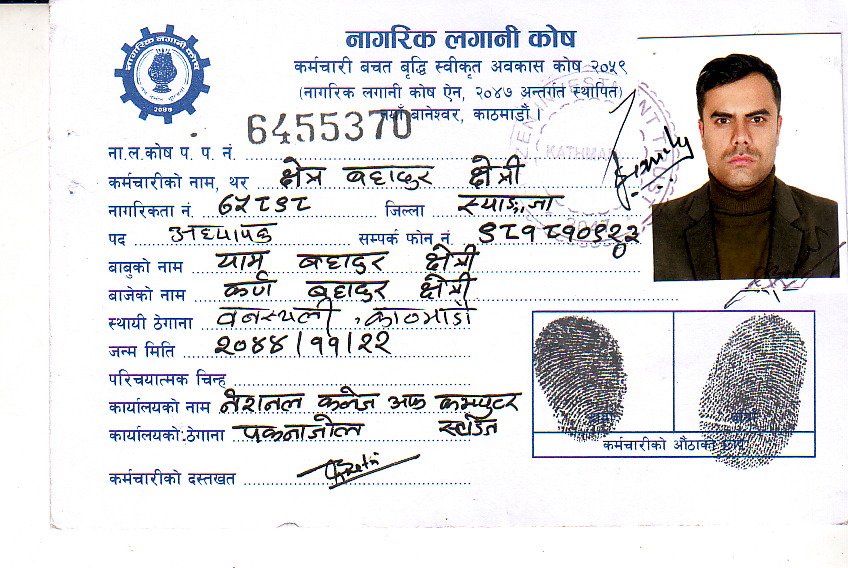 नागरिक लगानी कोष
कर्मचारी बचत बृद्धि स्वीकृत अवकास कोष २०५९
(नागरिक लगानी कोष ऐन, २०४७ अन्तर्गत स्थापित)
नयाँ बानेश्वर, काठमाडौं ।
नागरिक लगानी कोष
२०४७
6455370
ना.ल.कोष प. प. नं.
कर्मचारीको नाम, थर क्षेत्र बहादुर क्षेत्री
नागरिकता नं. ६५८९८ जिल्ला स्याङ्जा
पद अध्यापक सम्पर्क फोन नं.
KATHMANDU
बाबुको नाम याम बहादुर क्षेत्री
बाजेको नाम कर्ण बहादुर क्षेत्री
स्थायी ठेगाना वनस्थली, काठमाडौं
जन्म मिति २०४४/११/२२
परिचयात्मक चिन्ह
कार्यालयको नाम नेशनल कलेज अफ कम्प्युटर
कार्यालयको ठेगाना पकनाजोल स्टडिज
कर्मचारीको औंठाको छाप
कर्मचारीको दस्तखत